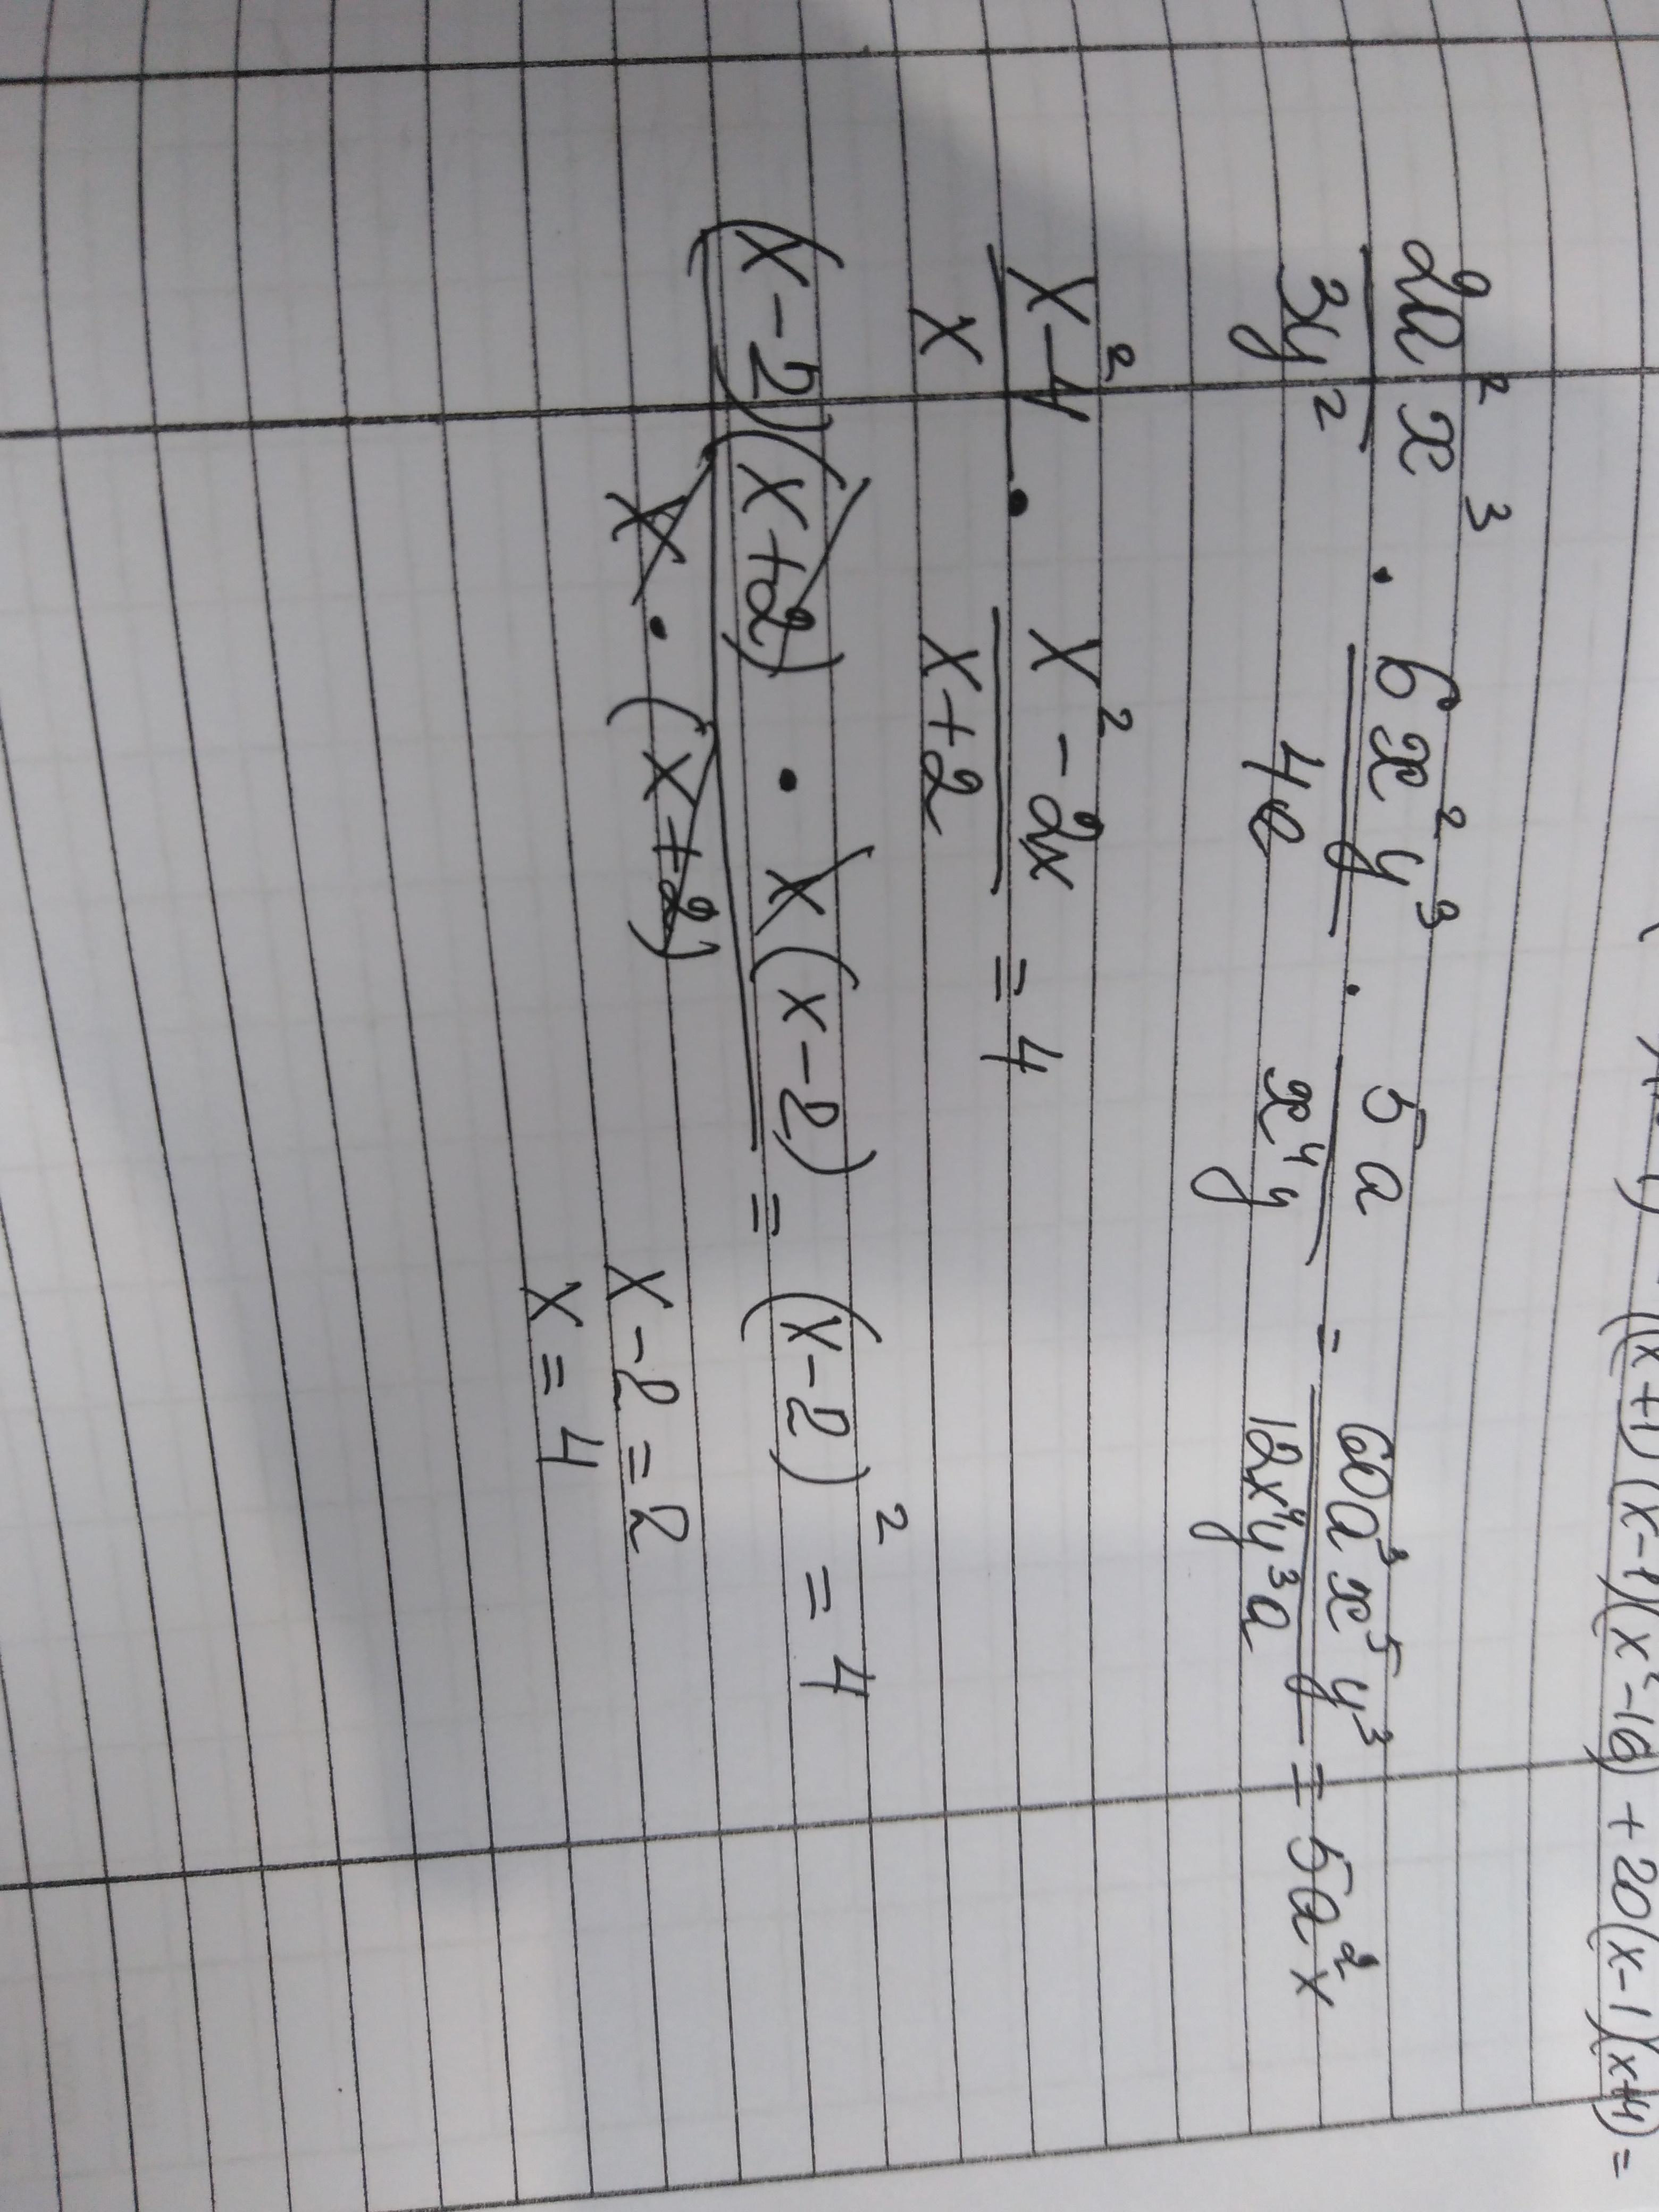 (x+1)(x-1)(x²-16) + 20(x-1)(x+4) =
2a²x³/3y² · 6x²y³/4a · 5a/x⁴y = 60a³x⁵y³/12x⁴y³a = 5a²x
x²-4/x · x²-2x/x+2 = 4
(x-2)(x+2) · x(x-2)/x · (x+2) = (x-2)² = 4
x-2=2
x=4